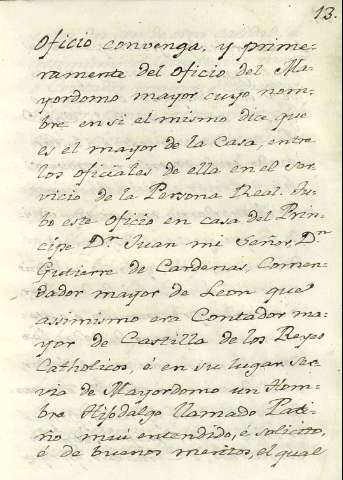 13.
Oficio convenga, y prime-
ramente del oficio del Ma-
yordomo mayor cuyo nom-
bre en si el mismo dice que
es el mayor de la Casa, entre
los oficiales de ella en el Ser-
vicio de la Persona Real. tu-
bo este oficio en casa del Prin-
cipe Dn. Juan mi Señor, Dn.
Gutierre de Cardenas, Comen-
dador mayor de Leon que
assimismo era Contador ma-
yor de Castilla de los Reyes
Catholicos, é en su lugar Ser-
via de Mayordomo un Hom-
bre Hijodalgo llamado Pati-
ño mui entendido, é solicito,
é de buenos meritos, el qual